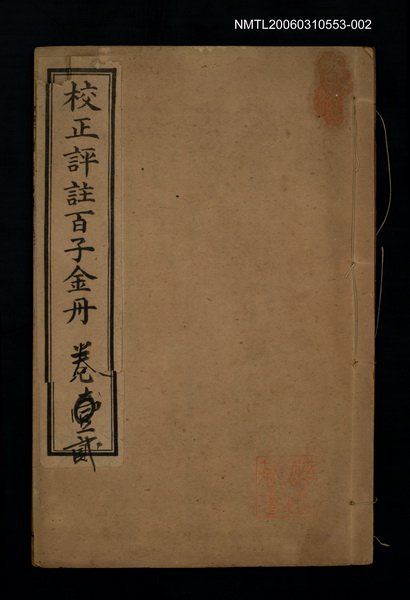 NMTL20060310553-002
校正評註百子金丹
卷壹貳